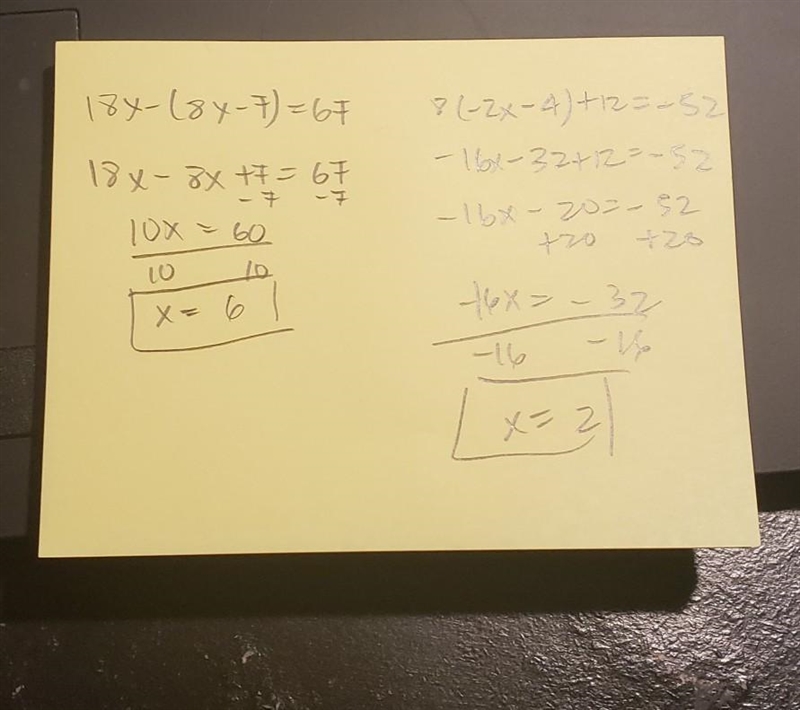 18x-(8x-7)=67
18x-8x+7=67
-7 -7
10x=60
10 10
x=6
8(-2x-4)+12=-52
-16x-32+12=-52
-16x-20=-52
+20 +20
-16x=-32
-16 -16
x=2